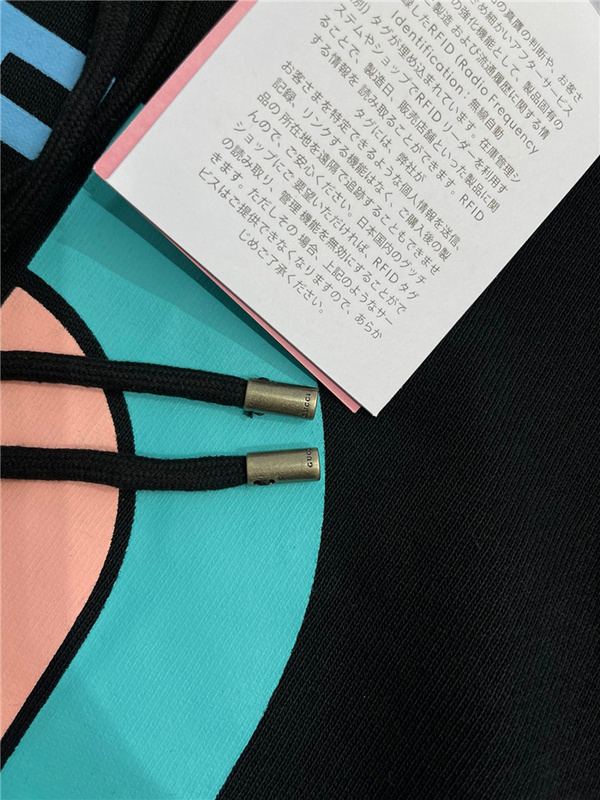 の真贋の判断や、お客さ
め細かいアフターサービス
の強化機能として、製品固有の
ご製造 および流通履歴に関する情
録したRFID (Radio Frequency
Identification：無線自動
別）タグが埋め込まれています。在庫管理シ
ステムやショップでRFIDリーダーを利用す
ることで、製造日、販売店舗といった製品に関
する情報を 読み取ることができます。RFID
タグには、弊社が
お客さまを特定できるような個人情報を送信、
記録、リンクする機能はなく、ご購入後の製
品の 所在地を遠隔で追跡することもできませ
んので、ご安心ください。日本国内のグッチ
ショップにご 要望いただければ、RFID タグ
の読み取り、管理 機能を無効にすることがで
きます。ただしその 場合、上記のようなサー
ビスはご提供できなくなりますので、あらか
じめご了承ください。
GUCCI
GUCCI